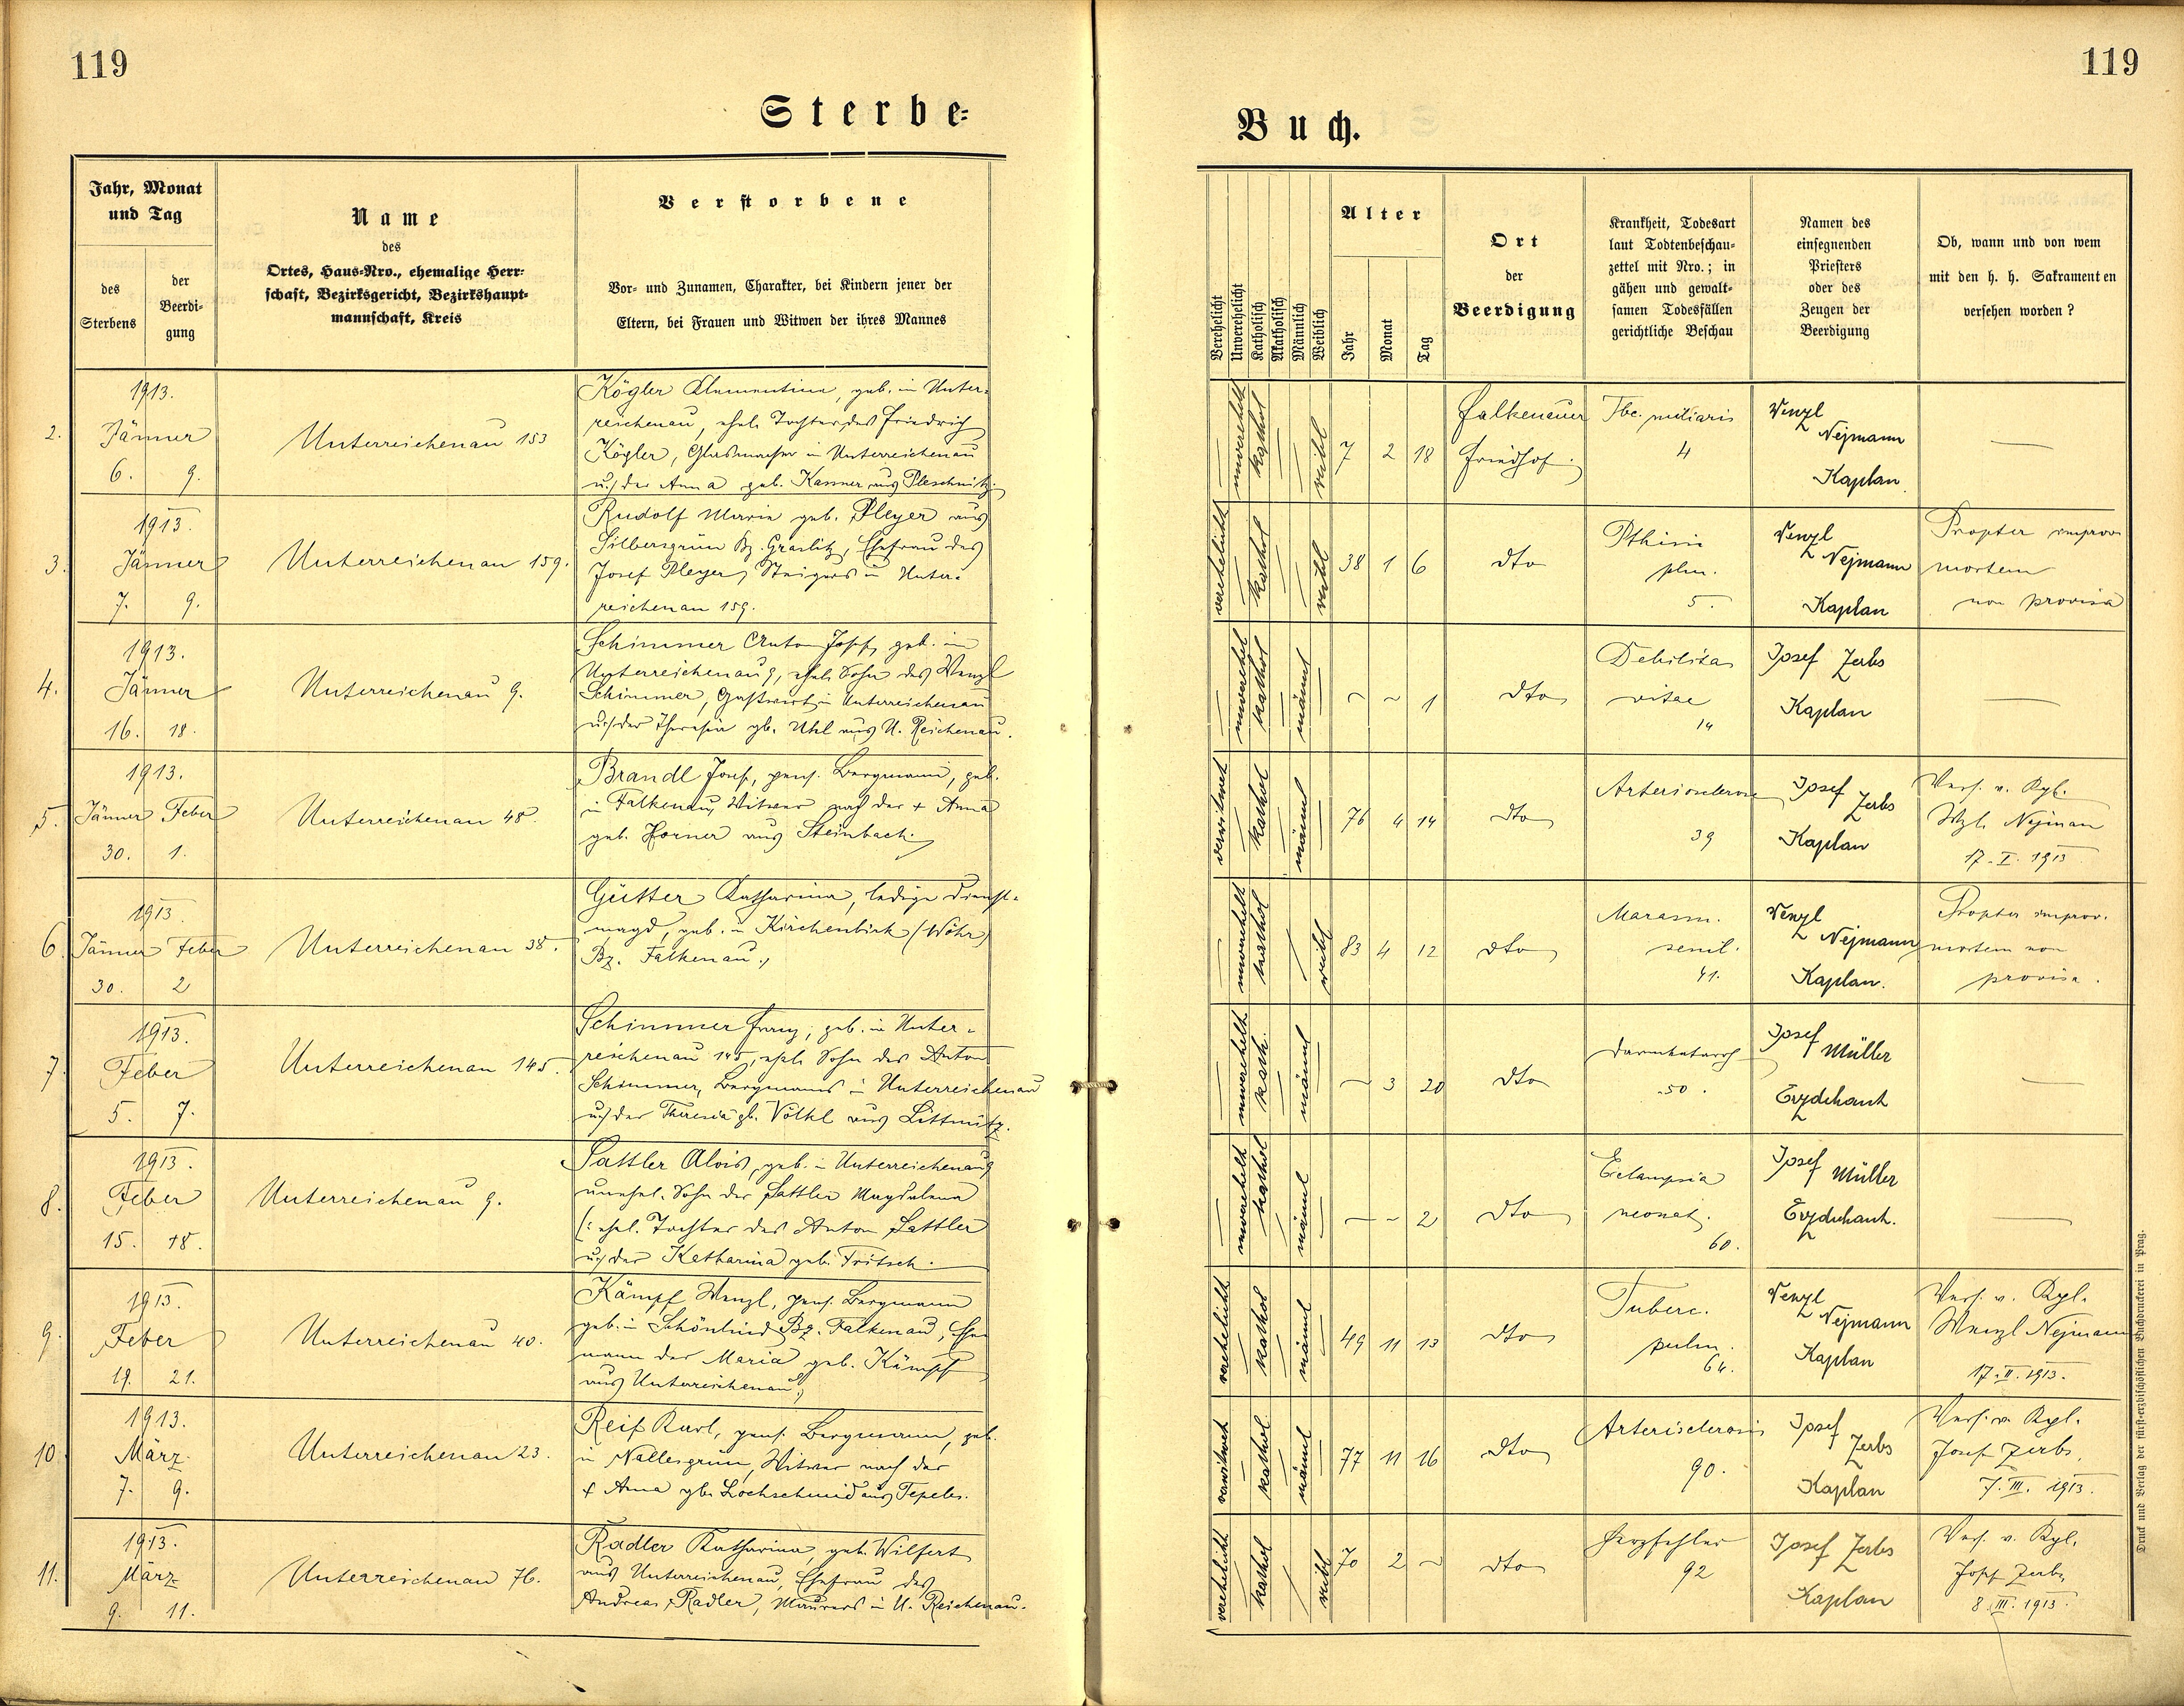 119
119
Sterbe-
Buch.
Jahr, Monat
und Tag
des
Sterbens
der
Beerdi-
gung
Name
des
Ortes, Haus-Nro., ehemalige Herr-
schaft, Bezirksgericht, Bezirkshaupt-
mannschaft, Kreis
Verstorbene
Vor- und Zunamen, Charakter, bei Kindern jener der
Eltern, bei Frauen und Witwen der ihres Mannes
Verehelicht
Unverehelicht
Katholisch
Akatholisch
Männlich
Weiblich
Alter
Jahr
Monat
Tag
Ort
der
Beerdigung
Krankheit, Todesart
laut Todtenbeschau-
zettel mit Nro.; in
gähen und gewalt-
samen Todesfällen
gerichtliche Beschau
Namen des
einsegnenden
Priesters
oder des
Zeugen der
Beerdigung
Ob, wann und von wem
mit den h. h. Sakramenten
versehen worden?
2.
1913.
Jänner
6. 9.
Unterreichenau 153
Kögler Klementine, geb. in Unter-
reichenau, ehel. Tochter des Friedrich
Kögler, Glasmacher in Unterreichenau
u. der Anna geb. Kanner aus Pleschnitz.
unverehelt
kathol
weibl
7 2 18
Falkenauer
Friedhof.
Tbc. miliaris
4
Wenzl
Nejmann
Kaplan.
—
3.
1913.
Jänner
7. 9.
Unterreichenau 159.
Rudolf Marie geb. Pleyer aus
Silbersgrün Bz. Graslitz, Ehefrau des
Josef Pleyer, Steigers in Unter-
reichenau 159.
verehelicht
kathol
weibl
38 1 6
dto
Pthisis
plm.
5.
Wenzl
Nejmann
Kaplan
Propter improv.
mortem
non provisa
4.
1913.
Jänner
16. 18.
Unterreichenau 9.
Schimmer Anton Josef, geb. in
Unterreichenau 9, ehel. Sohn des Wenzl
Schimmer, Gastwirt in Unterreichenau
u. der Theresia gb. Uhl aus U. Reichenau.
unverehel
kathol
männl
~ ~ 1
dto
Debilitas
vitae
14
Josef Zerbs
Kaplan
—
5.
1913.
Jänner Feber
30. 1.
Unterreichenau 48.
Brandl Josef, pens. Bergmann, geb.
in Falkenau, Witwer nach der + Anna
geb. Horner aus Steinbach.
verwitwet
kathol
männl
76 4 14
dto
Arteriosclerose
39
Josef
Zerbs
Kaplan
Vers. v. Kpl.
Wzl. Nejman
17. I. 1913
6.
1913
Jänner Feber
30. 2
Unterreichenau 38.
Gütter Katharina, ledige Dienst-
magd, geb. in Kirchenbirk (Wöhr)
Bz. Falkenau.
unverehelt
kathol
weibl
83 4 12
dto
Marasm.
senil.
41.
Wenzl
Nejmann
Kaplan.
Propter improv.
mortem non
provisa.
7.
1913.
Feber
5. 7.
Unterreichenau 145.
Schimmer Franz, geb. in Unter-
reichenau 145, ehel. Sohn des Anton
Schimmer, Bergmanns in Unterreichenau
u. der Theresia gb. Völkl aus Littmitz.
unverehelt
kath.
männl
~ 3 20
dto
Darmkatarrh
50.
Josef
Müller
Erzdechant
—
8.
1913.
Feber
15. 18.
Unterreichenau 9.
Sattler Alois, geb. in Unterreichenau 9
unehel. Sohn der Sattler Magdalena
(: ehel. Tochter des Anton Sattler
u. der Katharina geb. Fritsch.
unverehelt
kathol
männl
— ~ 2
dto
Eclampsia
neonat.
60.
Josef Müller
Erzdechant.
—
9.
1913.
Feber
19. 21.
Unterreichenau 40.
Kämpf Wenzl, pens. Bergmann
geb. in Schönlind Bz. Falkenau, Ehe-
mann der Maria geb. Kämpf
aus Unterreichenau
verehelicht
kathol
männl
49 11 13
dto
Tuberc.
pulm.
64.
Wenzl
Nejmann
Kaplan
Vers. v. Kpl.
Wenzl Nejmann
17. II. 1913.
10.
1913.
März
7. 9.
Unterreichenau 23.
Reif Karl, pens. Bergmann, geb.
in Nallesgrün, Witwer nach der
+ Anna gb. Lochschmid aus Tepeles.
verwitwet
kathol
männl
77 11 16
dto
Arteriosclerosis
90.
Josef
Zerbs
Kaplan
Vers. v. Kpl.
Josef Zerbs.
7. III. 1913.
11.
1913.
März
9. 11.
Unterreichenau 76.
Radler Katharina, geb. Wilfert
aus Unterreichenau, Ehefrau des
Andreas Radler, Maurers in U. Reichenau.
verehelicht
kathol
weibl
70 2 ~
dto
Herzfehler
92
Josef Zerbs
Kaplan
Vers. v. Kpl.
Josef Zerbs
8. III. 1913.
Druck und Verlag der fürst-erzbischöflichen Buchdruckerei in Prag.